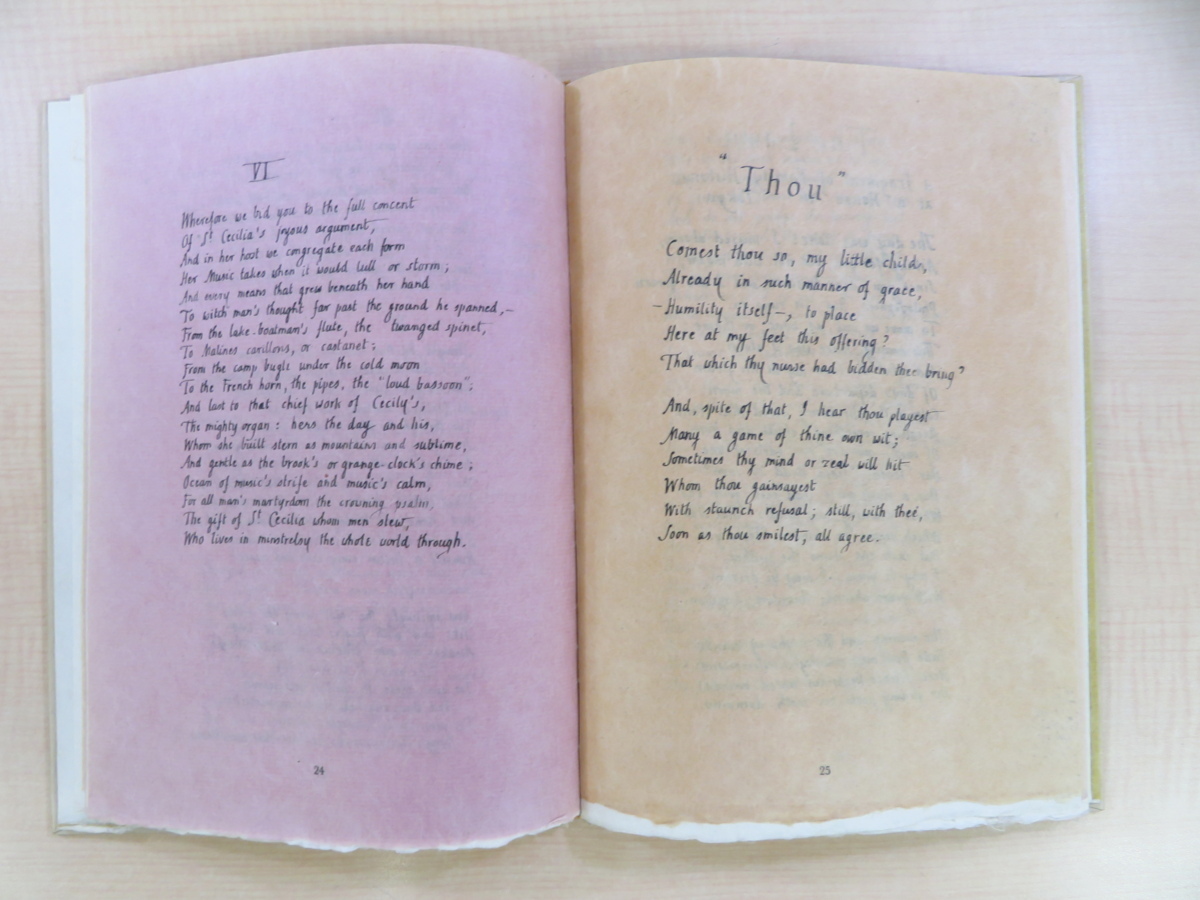 VI
Wherefore we bid you to the full concent
Of St Cecilia's joyous argument,
And in her host we congregate each form
Her Music takes when it would lull or storm;
And every means that grew beneath her hand
To witch man's thought far past the ground he spanned,-
From the lake-boatman's flute, the twanged spinet,
To Malines carillons, or castanet;
From the camp bugle under the cold moon
To the French horn, the pipes, the "loud bassoon";
And last to that chief work of Cecily's,
The mighty organ: hers the day and his,
Whom she built stern as mountains and sublime,
And gentle as the brook's or grange-clock's chime;
Ocean of music's strife and music's calm,
For all man's martyrdom the crowning psalm,
The gift of St Cecilia whom men slew,
Who lives in minstrelsy the whole world through.
24
"Thou"
Comest thou so, my little child,
Already in such manner of grace,
-Humility itself-, to place
Here at my feet this offering?
That which thy nurse had bidden thee bring?
And, spite of that, I hear thou playest
Many a game of thine own wit;
Sometimes thy mind or zeal will hit
Whom thou gainsayest
With staunch refusal; still, with thee,
Soon as thou smilest, all agree.
25